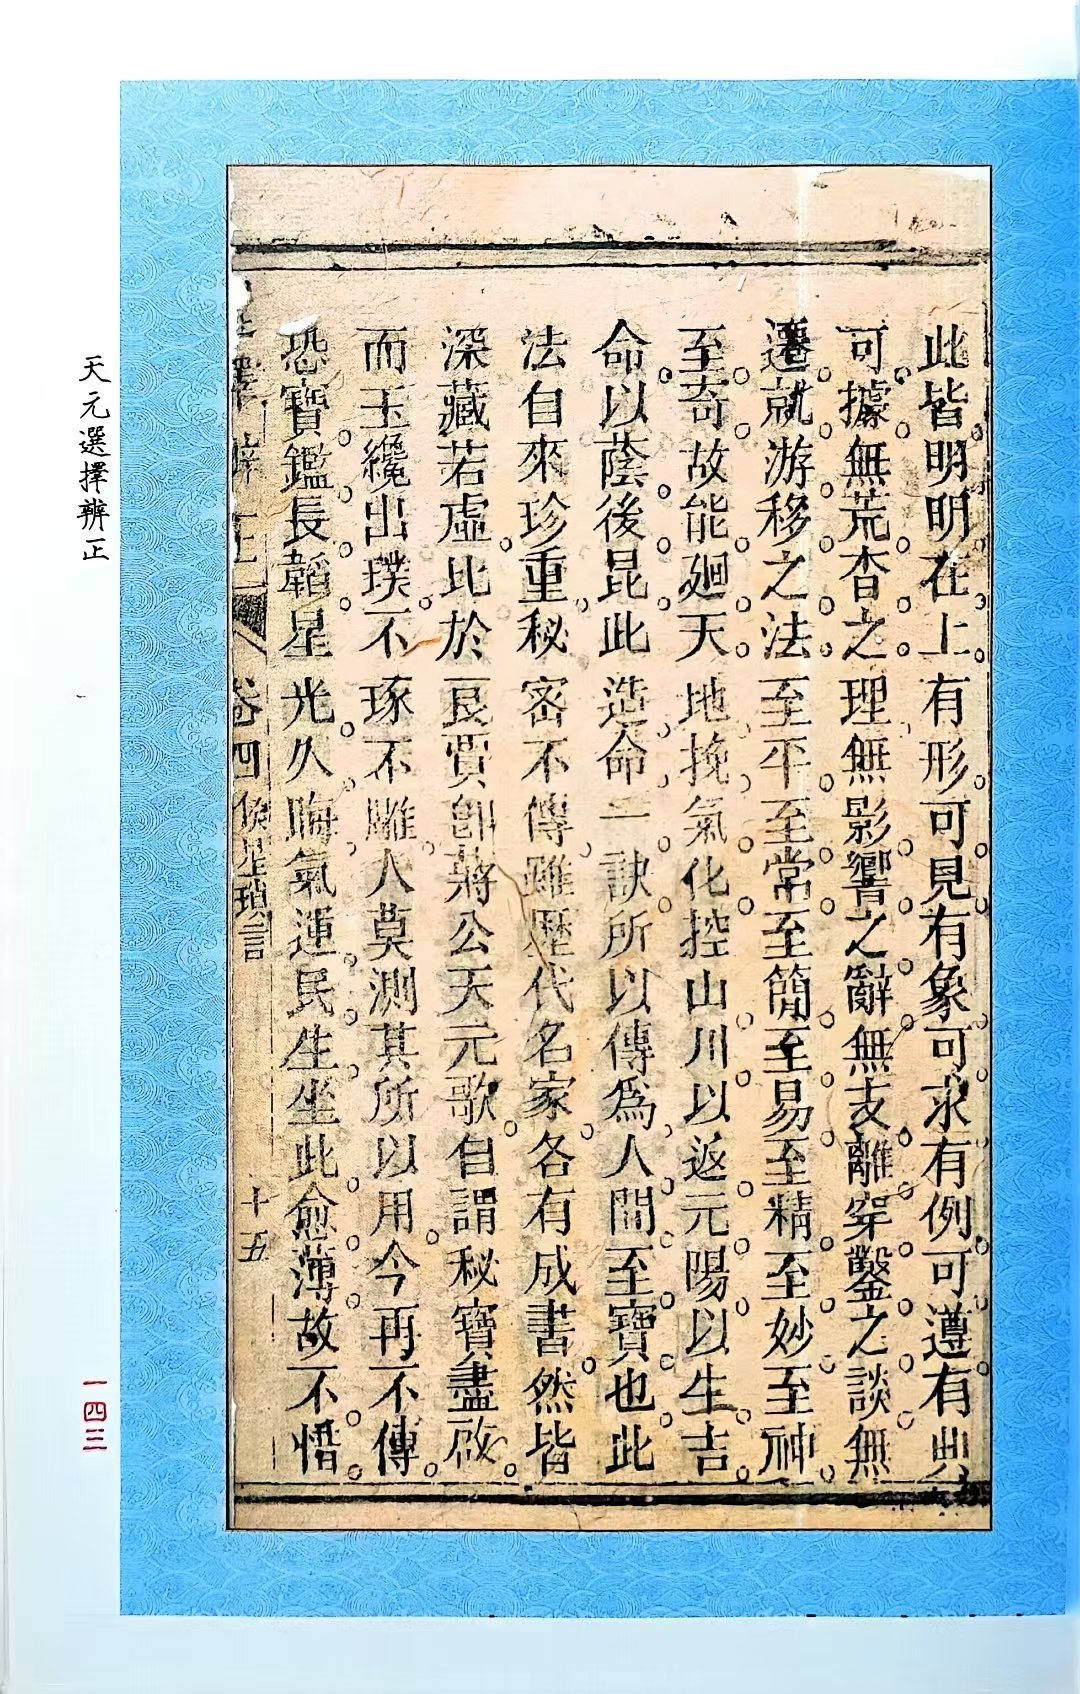 此皆明明在上有形可見有象可求有例可遵有典
可據無荒杳之理無影響之辭無支離穿鑿之談無
遷就游移之法至平至常至簡至易至精至妙至神
至奇故能廻天地挽氣化控山川以返元陽以生吉
命以蔭後昆此造命一訣所以傳爲人間至寶也此
法自來珍重秘密不傳雖歷代名家各有成書然皆
深藏若虛比於良賈卽蔣公天元歌自謂秘寶盡啟
而玉纔出璞不琢不雕人莫測其所以用今再不傳
恐寶鑑長韜星光久晦氣運民生坐此愈薄故不惜
擇辨正
卷四
俟星瑣言
十五
天元選擇辨正
一四三